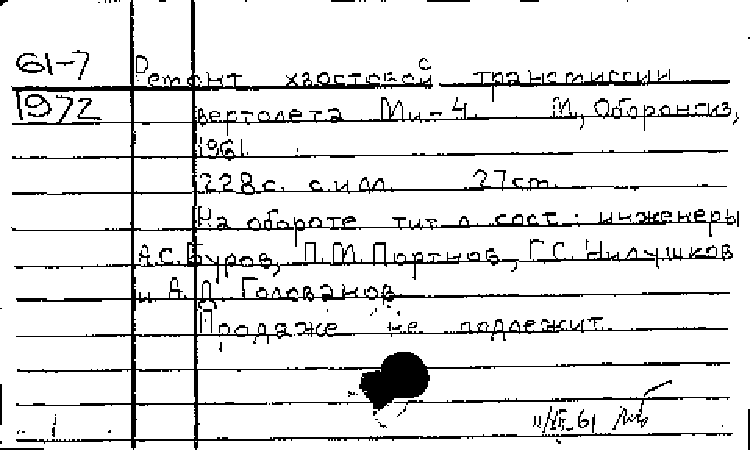 61-7 Ремонт хвостовой трансмиссии
1972 вертолета Ми-4. М., Оборонгиз,
1961.
228 с. с илл. 27 cm.
На обороте тит. л. сост.: инженеры
А.С. Буров, П.М. Портнов, Г.С. Чилушков
и А.Д. Голованов
Продаже не подлежит.
61